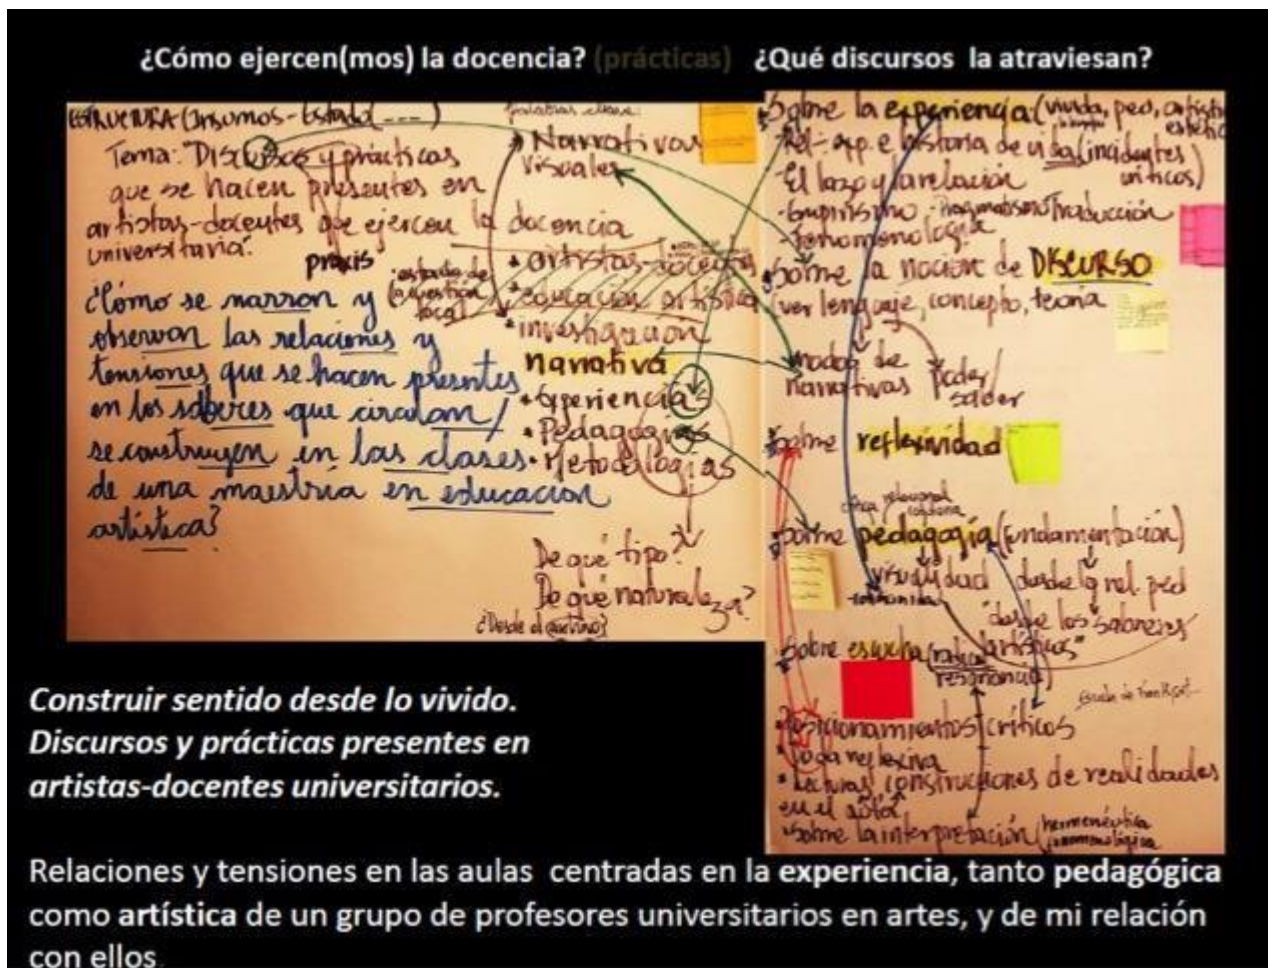 ¿Cómo ejercen(mos) la docencia? (prácticas) ¿Qué discursos la atraviesan?
ESTRUCTURA (Insumos - Estado
Tema: "Discursos y prácticas
que se hacen presentes en
artistas-docentes que ejercen la docencia
universitaria".
praxis
¿Cómo se narran y
observan las relaciones y
tensiones que se hacen presentes
en los saberes que circulan/
se construyen en las clases
de una maestría en educación
artística?
palabras clave:
Narrativas
visuales
estado de
la cuestión
local
• artistas-docentes
• educación artística
• investigación
narrativa
• Experiencias
• Pedagogías
• Metodologías
De qué tipo?
De qué naturaleza?
¿Desde el
Sobre la experiencia (vivida, ped, artíst
estétic
Rel. exp. e historia de vida (incidentes
críticos)
- El lazo y la relación
Traducción
- Fenomenología
Sobre la noción de DISCURSO
(ver lenguaje, concepto, teoría
modos de
narrativas
Poder/
saber
Sobre reflexividad
Sobre pedagogía (fundamentación)
visualidad
desde la rel. ped
desde los "saberes
artísticos"
Sobre escucha
resonancia)
Posicionamientos críticos
construcciones de realidades
en el
Sobre la interpretación (hermenéutica
Construir sentido desde lo vivido.
Discursos y prácticas presentes en
artistas-docentes universitarios.
Relaciones y tensiones en las aulas centradas en la experiencia, tanto pedagógica
como artística de un grupo de profesores universitarios en artes, y de mi relación
con ellos.